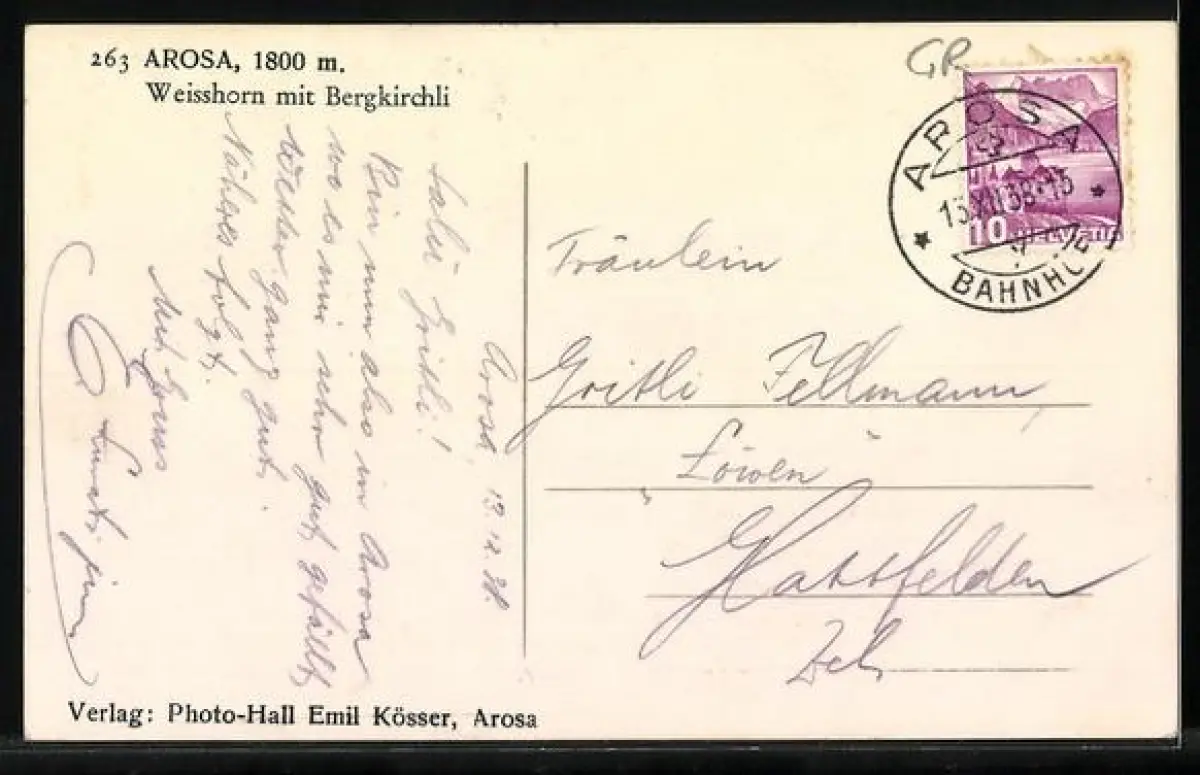 263 AROSA, 1800 m.
Weisshorn mit Bergkirchli
GR
AROSA
13.XII.38-15
BAHNHOF
10 HELVETIA
Arosa, 13.12.38.
Salü Gritli!
Bin nun also in Arosa
wo es mir sehr gut gefällt,
Wetter ganz gut.
Näheres folgt.
Mit Gruss
Fräulein
Gritli Fellmann
Löwen
Glattfelden
Zch
Verlag: Photo-Hall Emil Kösser, Arosa